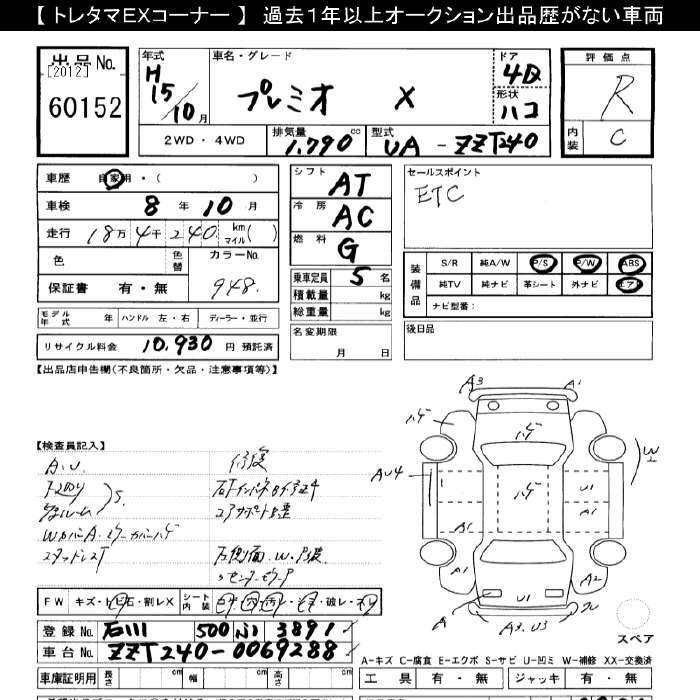 【 トレタマEXコーナー 】 過去1年以上オークション出品歴がない車両
出品No.
[2012]
60152
年式
H 15/10月
車名・グレード
プレミオ X
ドア
4D
形状
ハコ
評価点
R
内装
C
2WD・4WD
排気量
1,790cc
型式
UA - ZZT240
車歴 自家用・( )
車検 8年 10月
走行 18万 4千 240 km マイル( )
色
色替
カラーNo.
948
保証書 有・無
シフト
AT
冷房
AC
燃料
G
乗車定員 5 名
積載量 kg
総重量 kg
セールスポイント
ETC
装備品
S/R 純A/W P/S P/W ABS
純TV 純ナビ 革シート 外ナビ エアB
ナビ型番：
モデル年式 年 ハンドル 左・右 ディーラー・並行
名変期限 月 日
後日品
リサイクル料金 10,930 円 預託済
【出品店申告欄(不良箇所・欠品・注意事項等)】
A3 A1
ハゲ
ハゲ
W2
AU4
ハゲ
U1
A1
A1
A1
A2
A
U1
A3. U3
スペア
【検査員記入】
A.U.
下回り
S
修復
スタッドレスT
FW キズ・トビ石・割レX
シート内装
破レ
登録No. 石川 500 ふ 3891
車台No. ZZT240-0069288
A=キズ C=腐食 E=エクボ S=サビ U=凹ミ W=補修 XX=交換済
車庫証明用 長さ cm 幅 cm 高さ cm
工具 有・無 ジャッキ 有・無